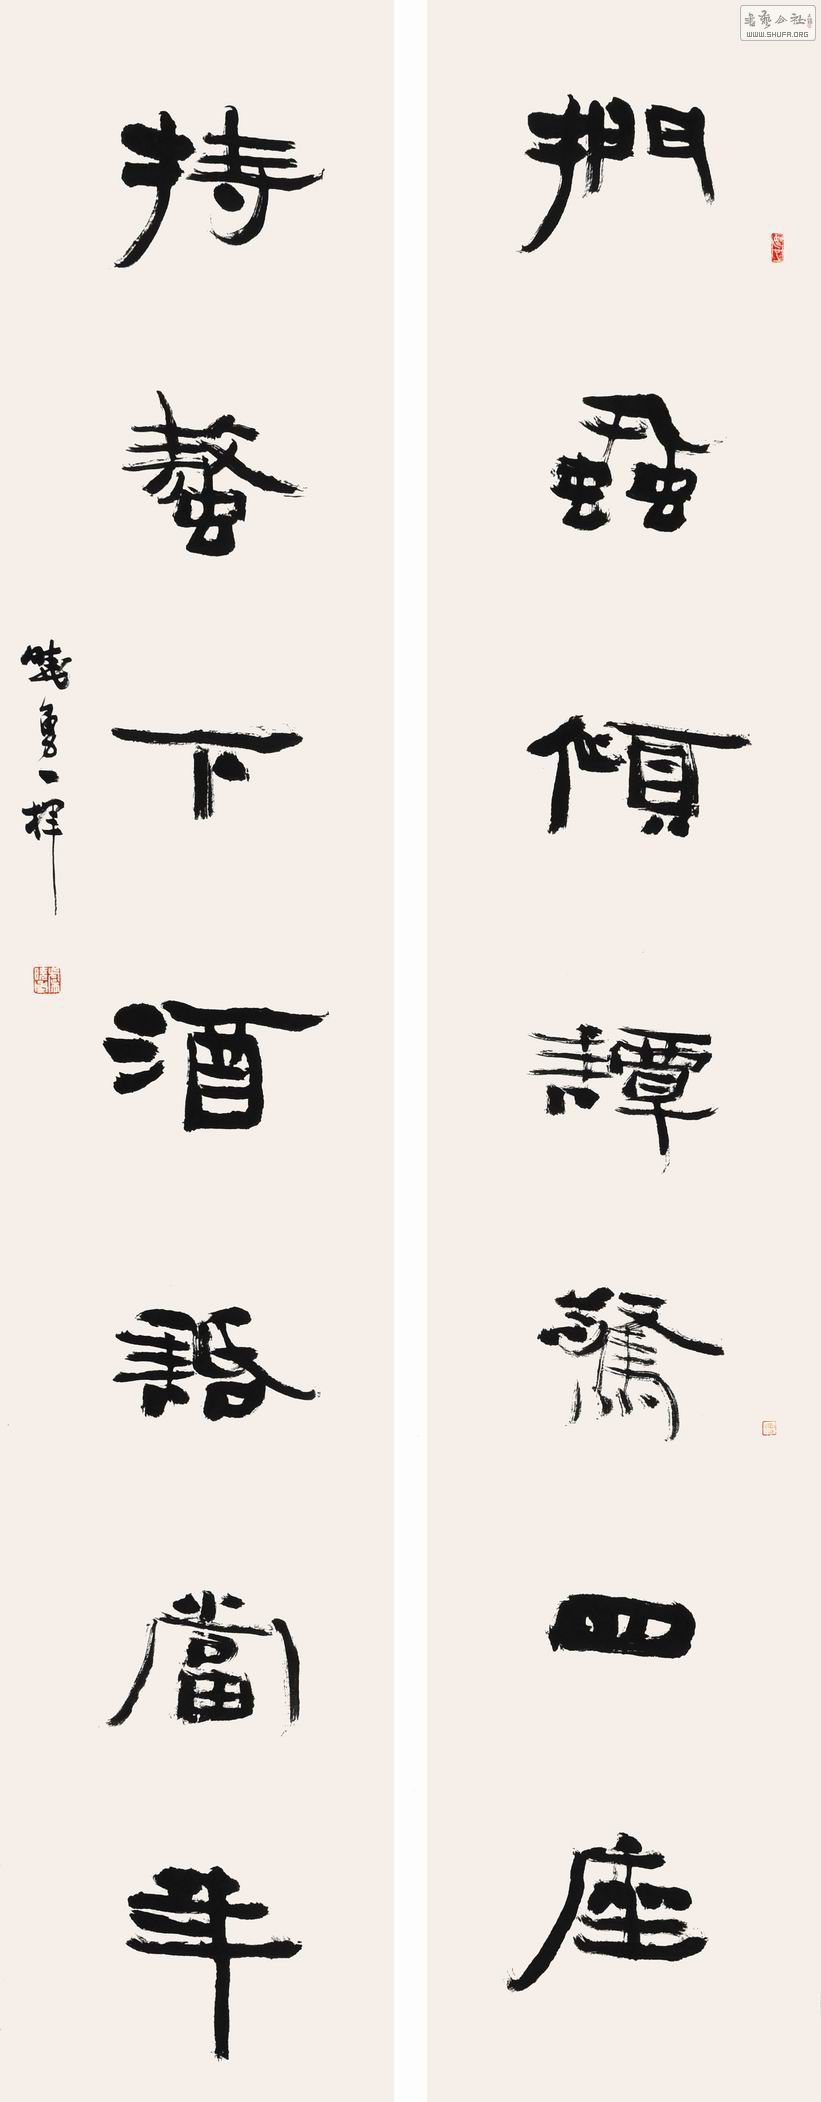 書藝公社
WWW.SHUFA.ORG
捫蝨傾譚驚四座
持螯下酒話當年
曉勇一揮